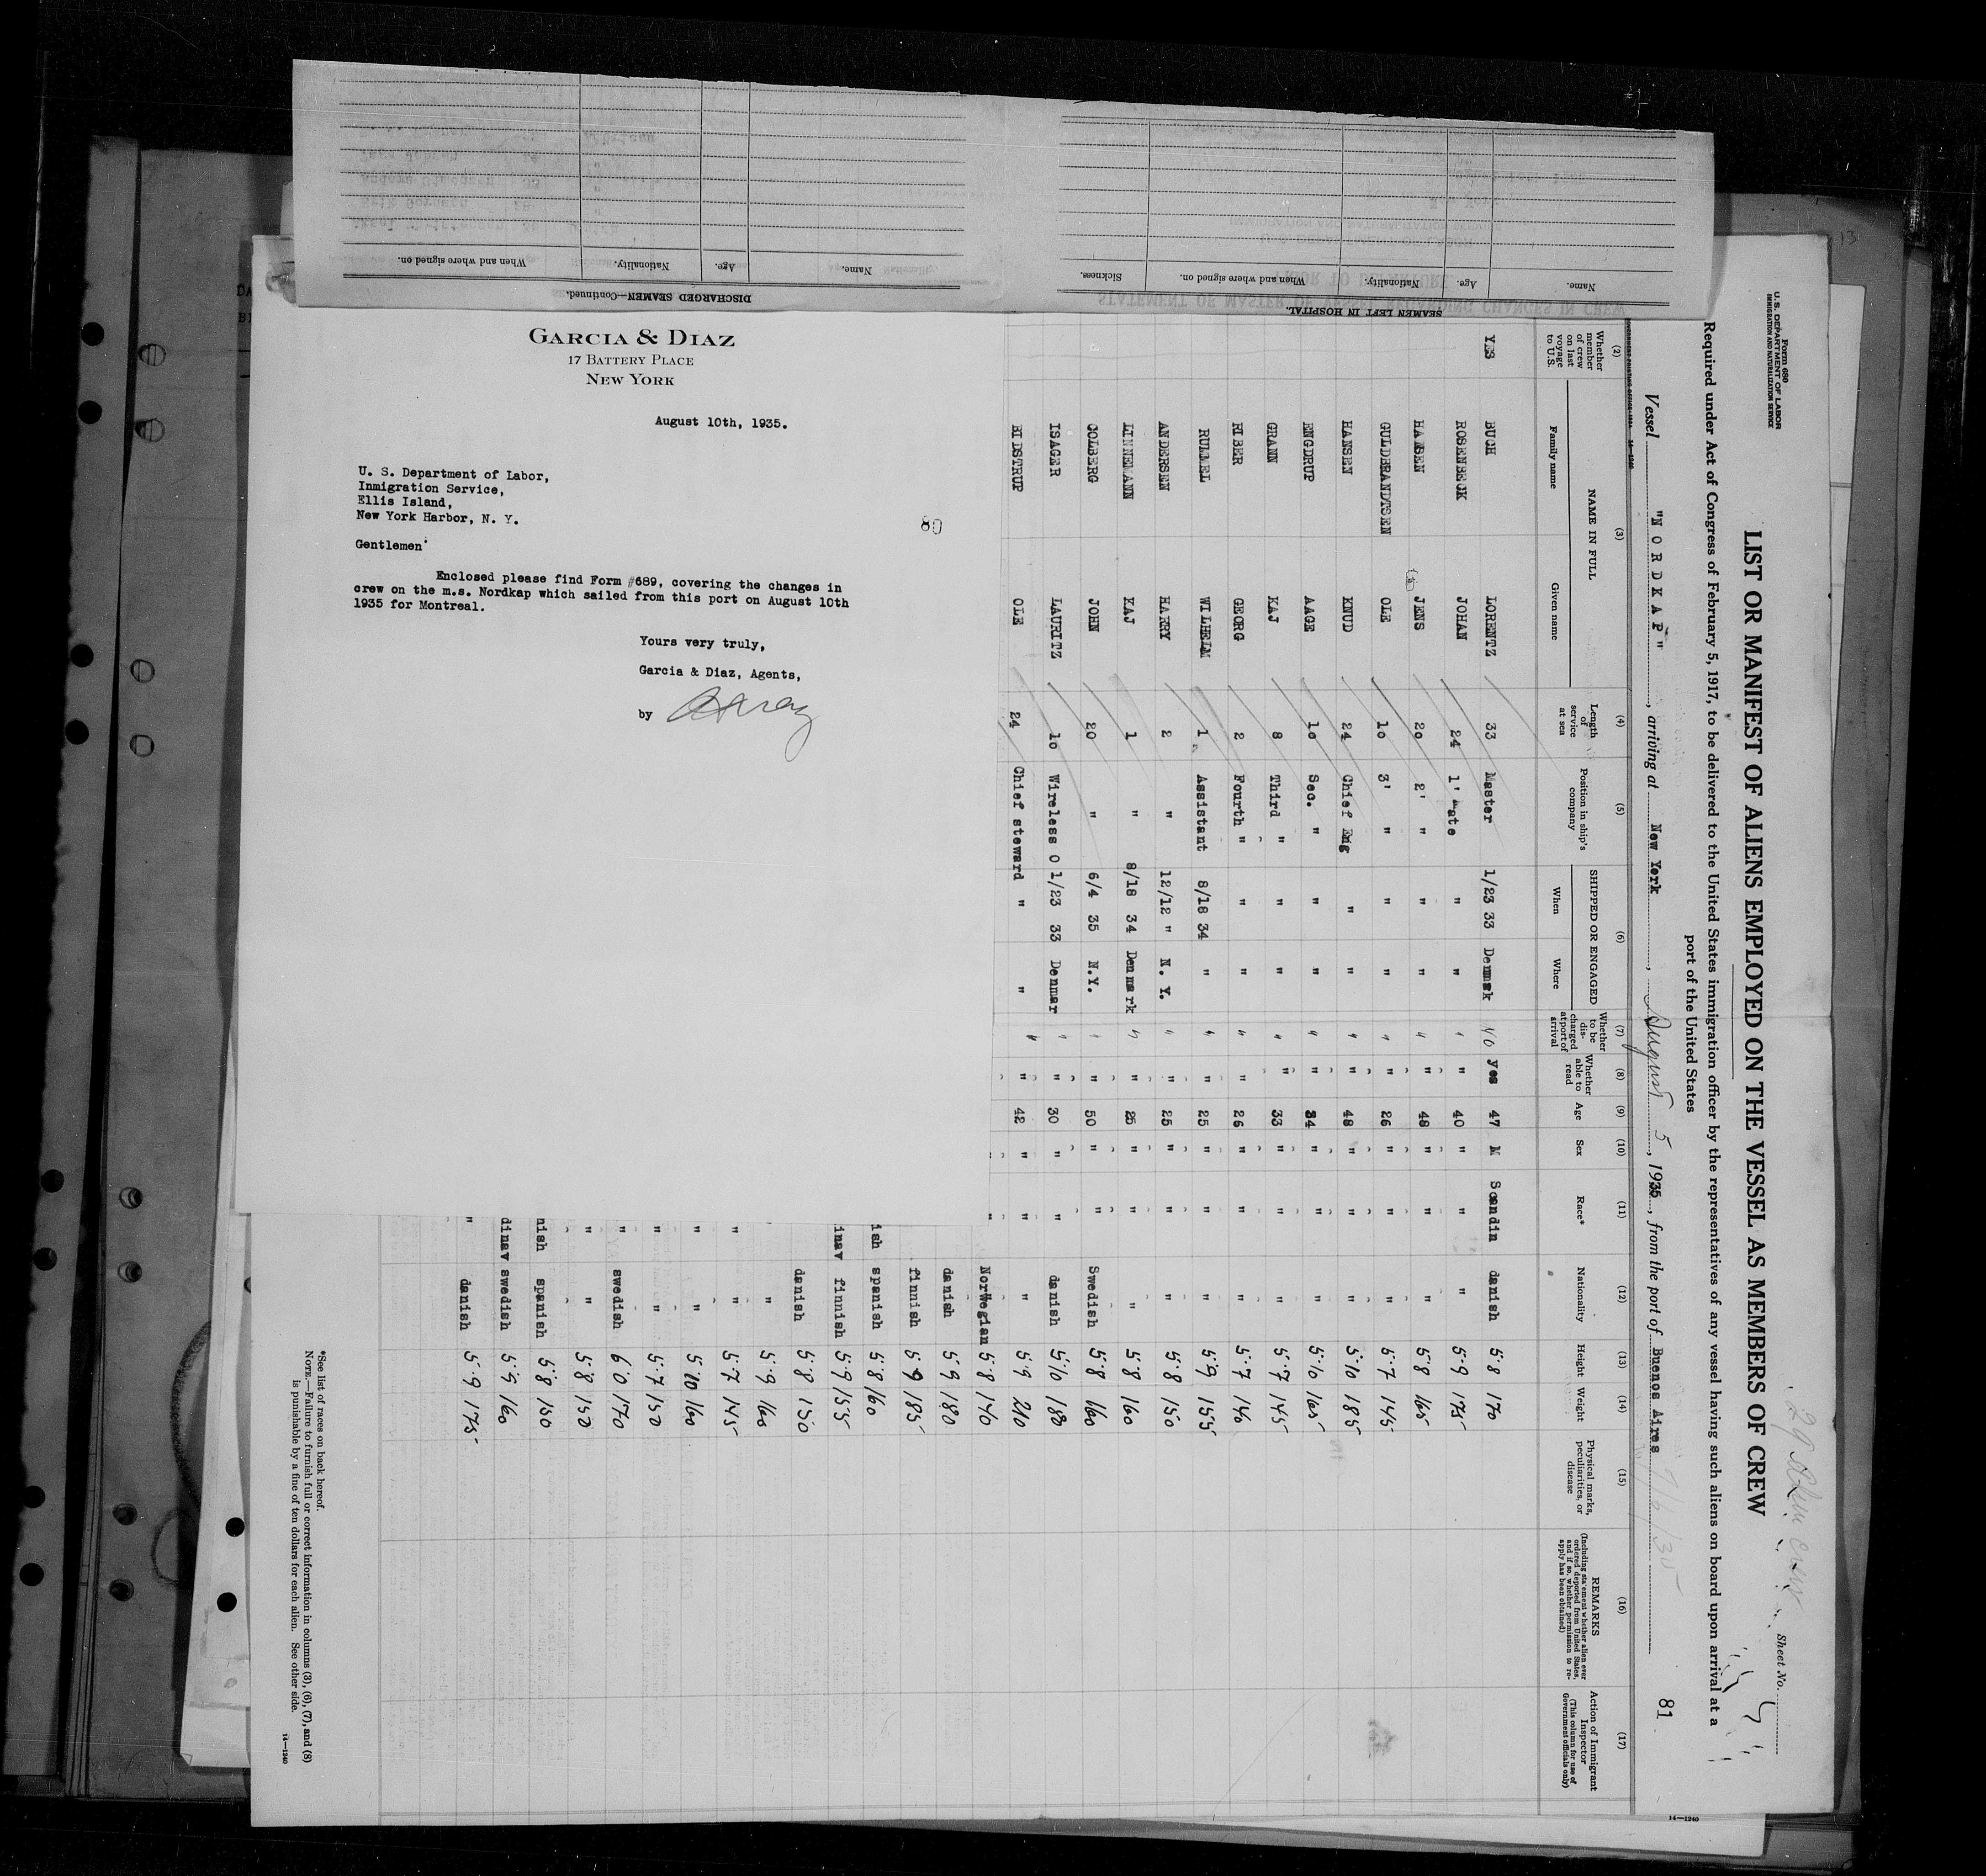 GARCIA & DIAZ
17 BATTERY PLACE
NEW YORK
August 10th, 1935.
U. S. Department of Labor,
Inmigration Service,
Ellis Island,
New York Harbor, N. Y.
80
Gentlemen'
Enclosed please find Form #689, covering the changes in
crew on the m.s. Nordkap which sailed from this port on August 10th
1935 for Montreal.
Yours very truly,
Garcia & Diaz, Agents,
by
DISCHARGED SEAMEN—Continued.
Name. Age. Nationality. When and where signed on.
SEAMEN LEFT IN HOSPITAL.
Name. Age. Nationality. When and where signed on. Sickness.
STATEMENT OF MASTER OF VESSEL REGARDING CHANGES IN CREW
PRIOR TO DEPARTURE
Form 680
U. S. DEPARTMENT OF LABOR
IMMIGRATION AND NATURALIZATION SERVICE
Sheet No.
81
LIST OR MANIFEST OF ALIENS EMPLOYED ON THE VESSEL AS MEMBERS OF CREW
Required under Act of Congress of February 5, 1917, to be delivered to the United States immigration officer by the representatives of any vessel having such aliens on board upon arrival at a
port of the United States
Vessel "NORDKAP", arriving at New York, August 5, 1935, from the port of Buenos Aires
(2) (3) (4) (5) (6) (7) (8) (9) (10) (11) (12) (13) (14) (15) (16) (17)
Whether member of crew on last voyage to U.S.
NAME IN FULL
Family name Given name
Length of service at sea
Position in ship's company
SHIPPED OR ENGAGED
When Where
Whether to be discharged at port of arrival
Whether able to read
Age
Sex
Race*
Nationality
Height
Weight
Physical marks, peculiarities, or disease
REMARKS
(Including statement whether alien ever ordered deported from United States, and if so, whether permission to reapply has been obtained)
Action of Immigrant Inspector
(This column for use of Government officials only)
YES BUCH LORENTZ 33 Master 1/23 33 Denmak NO yes 47 M Scandin danish 5·8 170
ROSENBECK JOHAN 24 1' Mate " " " " 40 " " " 5·9 175
HANSEN JENS 20 2' " " " " " 48 " " " 5·8 165
GULDBRANDTSEN OLE 10 3' " " " " " 26 " " " 5·7 145
HANSEN KNUD 24 Chief Eng " " " " 48 " " " 5·10 185
ENGDRUP AAGE 10 Sec. " " " " " 34 " " " 5·10 165
GRANN KAJ 8 Third " " " " " 33 " " " 5·7 145
EIBER GEORG 2 Fourth " " " " " 26 " " " 5·7 140
RULLEL WILHELM 1 Assistant 8/18 34 " " " 25 " " " 5·9 155
ANDERSEN HARRY 2 " 12/12 " N. Y. " " 25 " " " 5·8 150
LINNEMANN KAJ 1 " 8/18 34 Denmark " " 25 " " " 5·8 160
COLBERG JOHN 20 " 6/4 35 N.Y. " " 50 " " Swedish 5·8 160
ISAGER LAURITZ 10 Wireless O 1/23 33 Denmar " " 30 " " danish 5·10 180
EIDSTRUP OLE 24 Chief steward " " " " 42 " " " 5·9 210
" Norwegian 5·8 140
danish 5·9 180
finnish 5·9 185
ish spanish 5·8 160
inav finnish 5·9 155
danish 5·8 150
" 5·9 160
" " 5·7 145
" " 5·10 160
" " 5·7 150
" swedish 6·0 170
" " 5·8 150
nish spanish 5·8 150
dinav swedish 5·9 160
" danish 5·9 175
*See list of races on back hereof.
NOTE.—Failure to furnish full or correct information in columns (3), (6), (7), and (8)
is punishable by a fine of ten dollars for each alien. See other side.
14—1240
14—1240